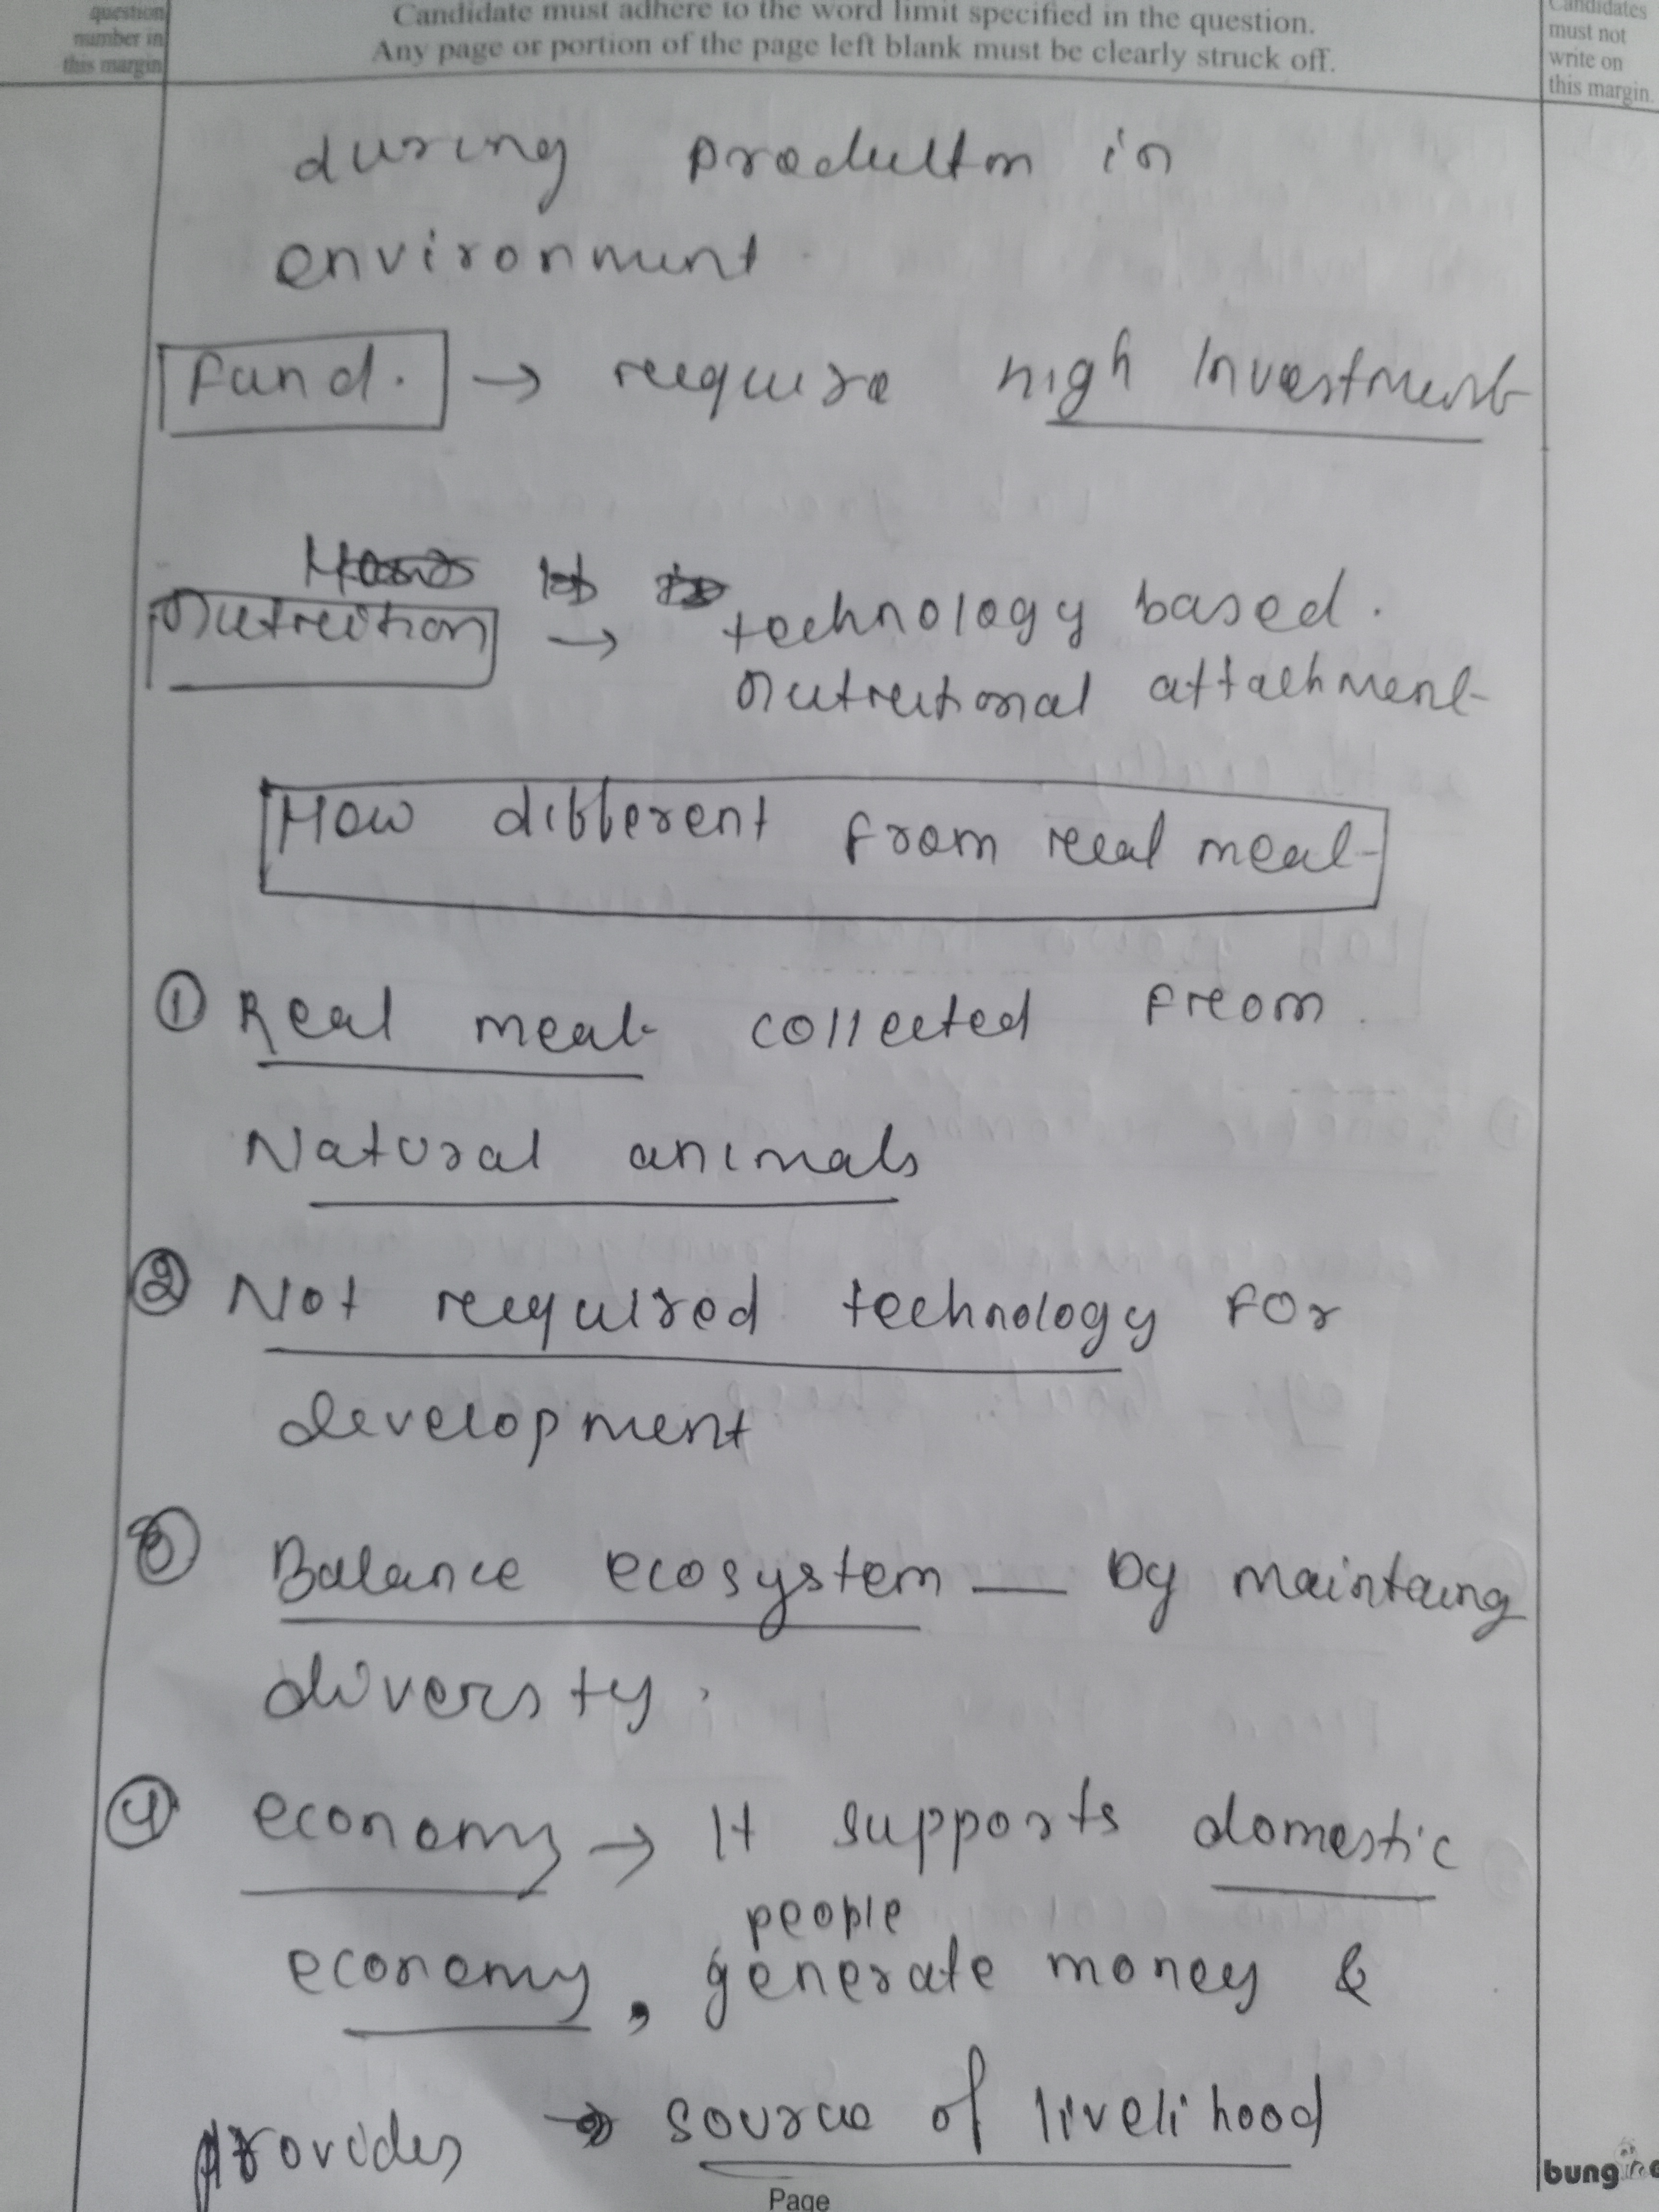 question
number in
this margin
Candidate must adhere to the word limit specified in the question.
Any page or portion of the page left blank must be clearly struck off.
Candidates
must not
write on
this margin.
during production in
environment.
Fund. → require high Investment
Nutrition → technology based.
nutritional attachment
How different from real meat
① Real meat collected from.
Natural animals
② Not required technology for
development
③ Balance ecosystem — by maintaing
diversty.
④ economy → It supports domestic
people
economy, generate money &
provides → source of livelihood
Page
bung